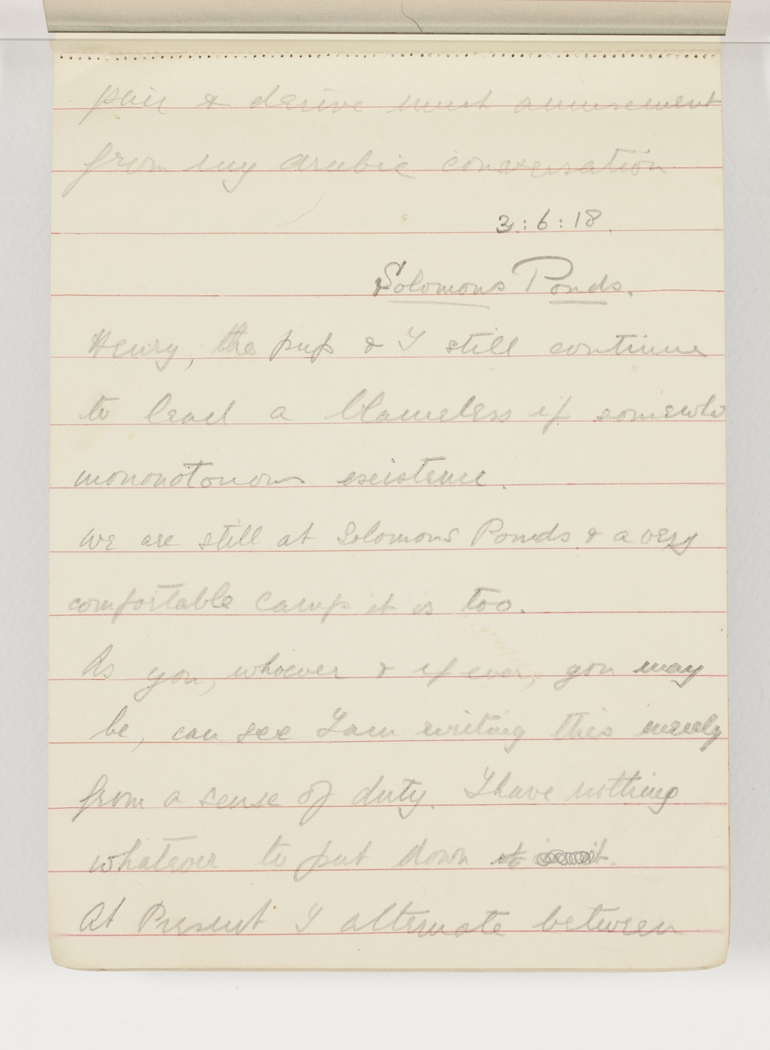 pair & derive much amusement
from my arabic conversation
3:6:18.
Solomons Ponds.
Henry, the pup & I still continue
to lead a blameless if somewh
mononotonous existence.
We are still at Solomons Ponds & a very
comfortable camp it is too.
As you, whoever & if ever, you may
be, can see I am writing this merely
from a sense of duty. I have nothing
whatever to put down
At Present I alternate between